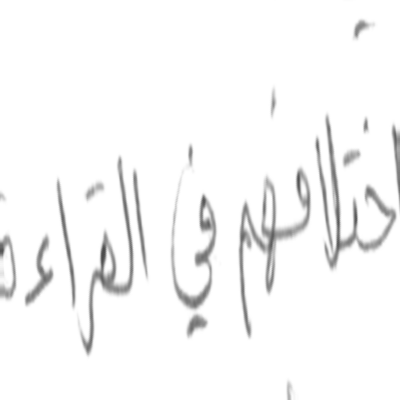 اختلافهم في القراءة